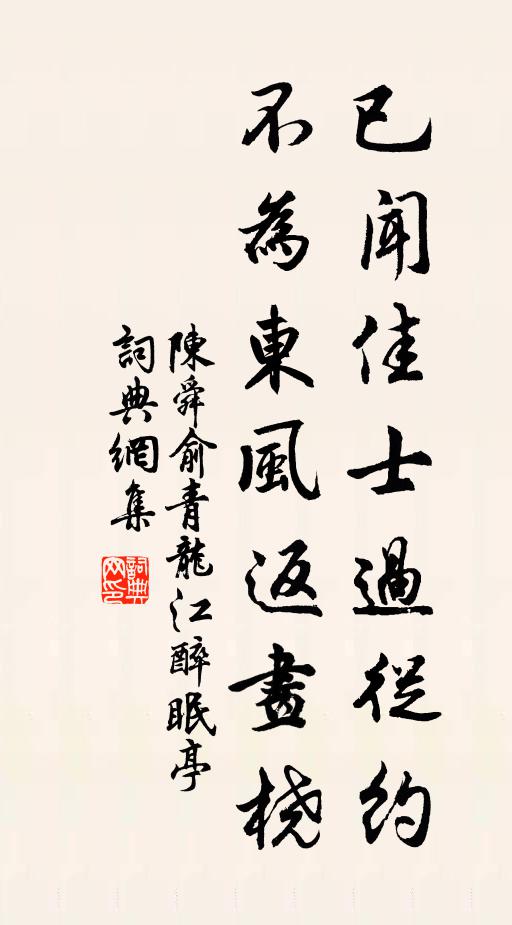 已聞佳士過從約
不為東風返畫橈
陳舜俞青龍江醉眠亭
詞典網集
詞典网印